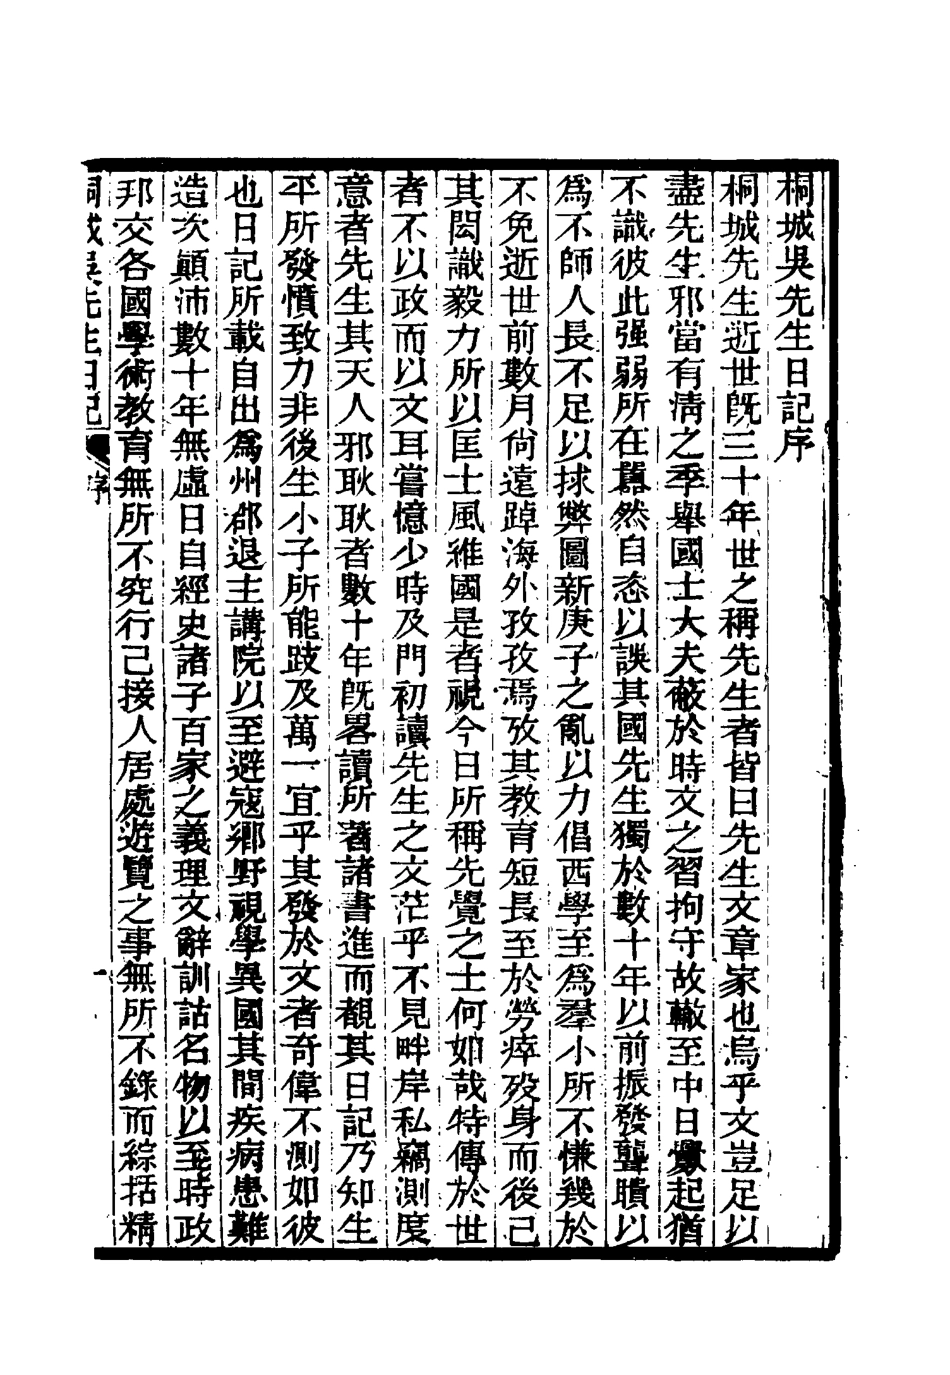 桐城吳先生日記序
桐城先生逝世旣三十年世之稱先生者皆曰先生文章家也烏乎文豈足以
盡先生邪當有淸之季舉國士大夫蔽於時文之習拘守故轍至中日釁起猶
不識彼此强弱所在囂然自恣以誤其國先生獨於數十年以前振發聾瞶以
爲不師人長不足以捄弊圖新庚子之亂以力倡西學至爲羣小所不慊幾於
不免逝世前數月尙遠踔海外孜孜焉攷其教育短長至於勞瘁歿身而後已
其閎識毅力所以匡士風維國是者視今日所稱先覺之士何如哉特傳於世
者不以政而以文耳嘗憶少時及門初讀先生之文茫乎不見畔岸私竊測度
意者先生其天人邪耿耿者數十年旣畧讀所著諸書進而覩其日記乃知生
平所發憤致力非後生小子所能跂及萬一宜乎其發於文者奇偉不測如彼
也日記所載自出爲州郡退主講院以至避寇鄉野視學異國其間疾病患難
造次顚沛數十年無虛日自經史諸子百家之義理文辭訓詁名物以至時政
邦交各國學術教育無所不究行己接人居處遊覽之事無所不錄而綜括精
桐城吳先生日記 序 一